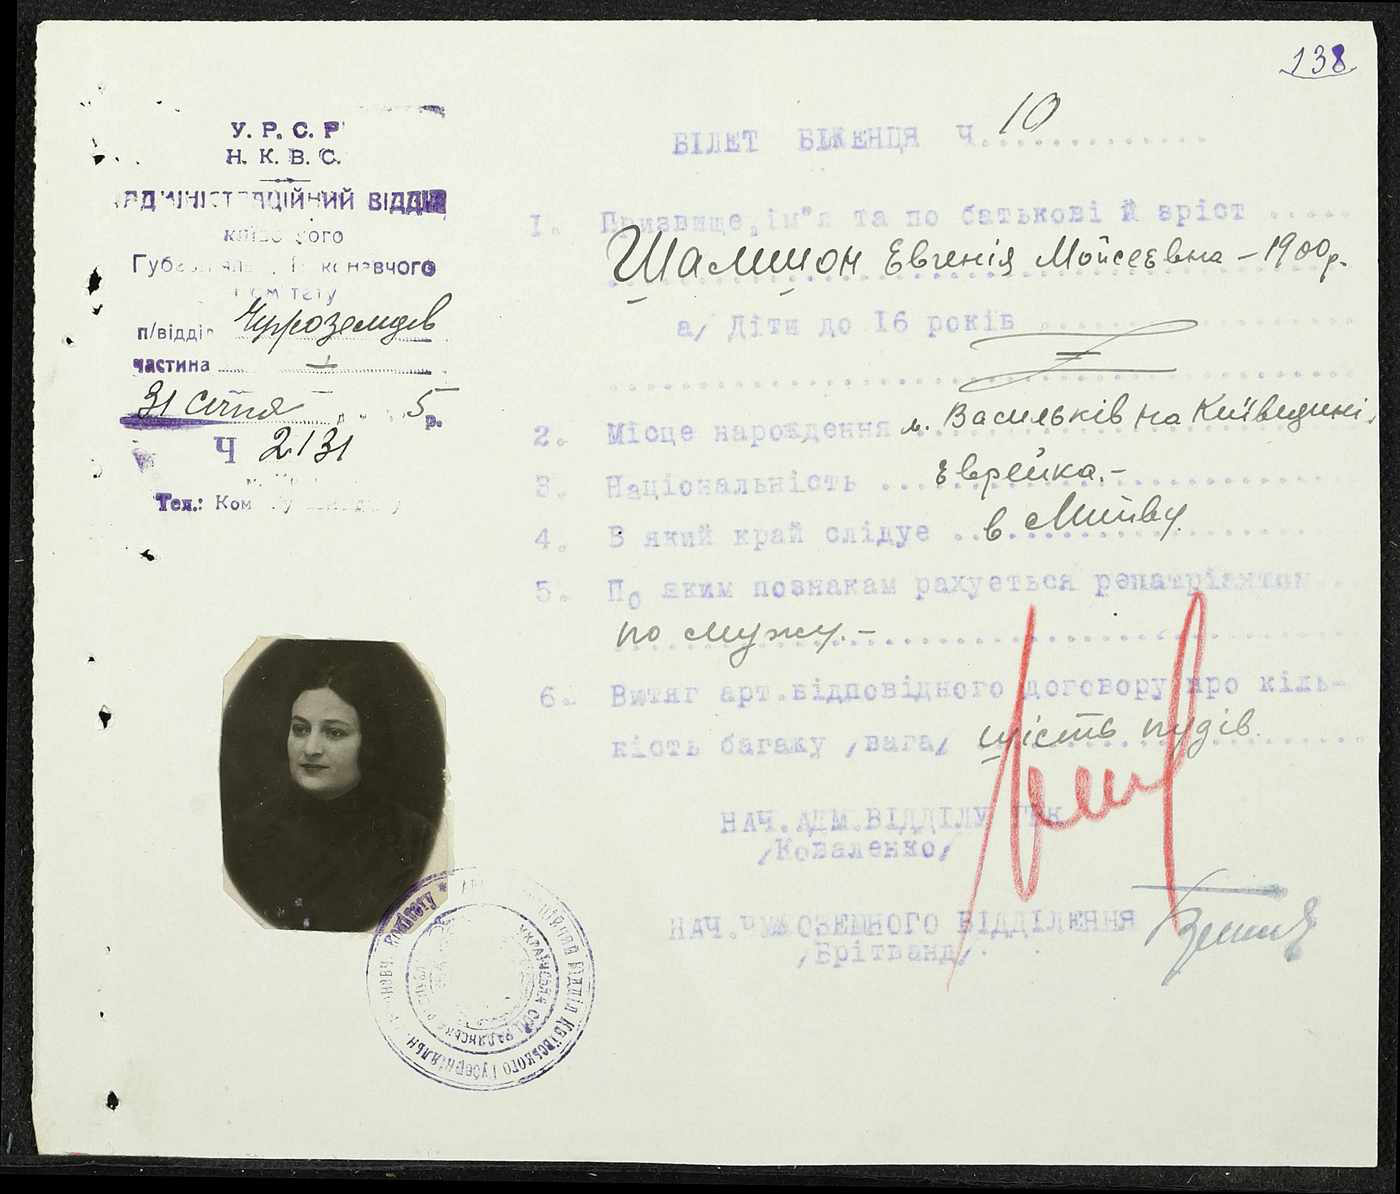 138
У. Р. С. Р
Н. К. В. С.
АДМІНІСТРАЦІЙНИЙ ВІДДІЛ
Київського
Губерніяльн. Виконавчого
Комітету
п/відділ Чужоземців
частина
31 січня 5 р.
Ч 2131
Тел.: Ком
БІЛЕТ БІЖЕНЦЯ Ч. 10
1. Призвище, ім"я та по батькові й зріст .....
Шамшон Евгенія Мойсеевна – 1900 р.
а/ Діти до 16 років
2. Місце нарождення м. Васильків на Київщині.
3. Національність ... Еврейка. –
4. В який край слідує .. в Литву.
5. По яким познакам рахується репатріянтом
по мужу. –
6. Витяг арт. відповідного договору про кіль-
кість багажу /вага/ шість пудів.
НАЧ. АДМ. ВІДДІЛУ ГВК
/Коваленко/
НАЧ. ЧУЖОЗЕМНОГО ВІДДІЛЕННЯ
/Брітванд/